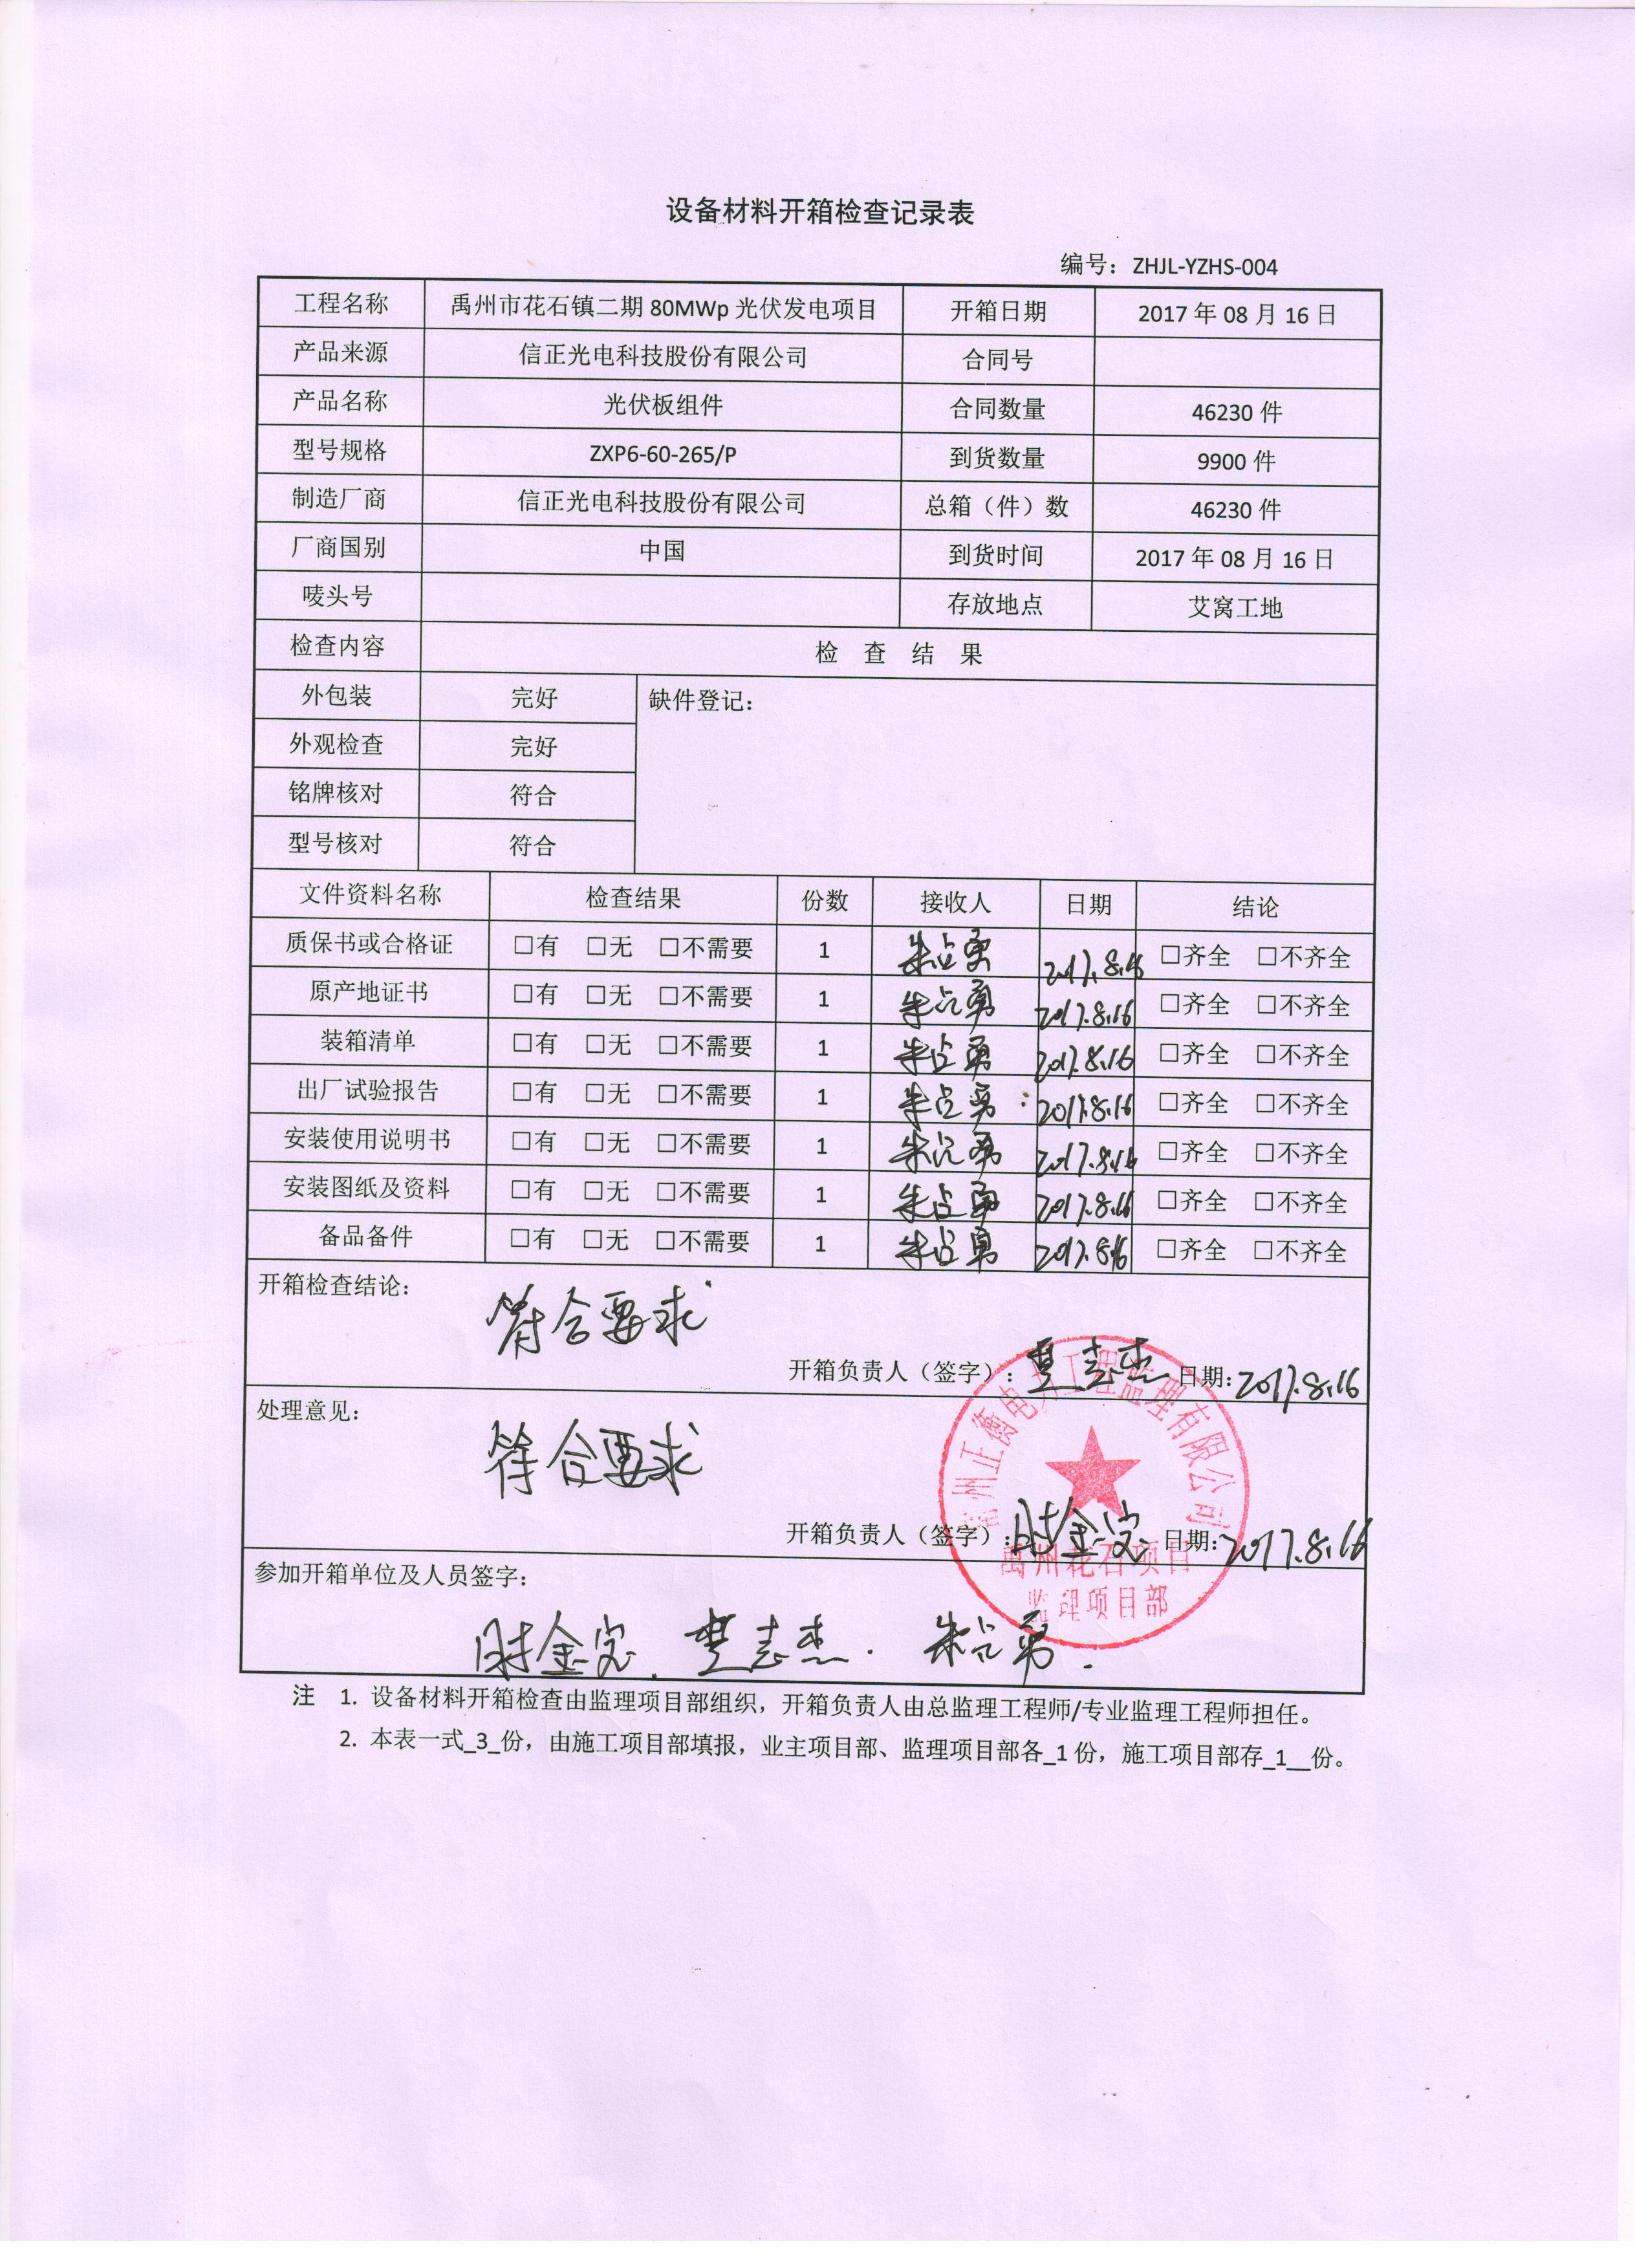 设备材料开箱检查记录表
编号：ZHJL-YZHS-004
工程名称 禹州市花石镇二期 80MWp 光伏发电项目 开箱日期 2017 年 08 月 16 日
产品来源 信正光电科技股份有限公司 合同号
产品名称 光伏板组件 合同数量 46230 件
型号规格 ZXP6-60-265/P 到货数量 9900 件
制造厂商 信正光电科技股份有限公司 总箱（件）数 46230 件
厂商国别 中国 到货时间 2017 年 08 月 16 日
唛头号 存放地点 艾窝工地
检查内容 检 查 结 果
外包装 完好 缺件登记：
外观检查 完好
铭牌核对 符合
型号核对 符合
文件资料名称 检查结果 份数 接收人 日期 结论
质保书或合格证 □有 □无 □不需要 1 朱占勇 2017.8.16 □齐全 □不齐全
原产地证书 □有 □无 □不需要 1 朱占勇 2017.8.16 □齐全 □不齐全
装箱清单 □有 □无 □不需要 1 朱占勇 2017.8.16 □齐全 □不齐全
出厂试验报告 □有 □无 □不需要 1 朱占勇 2017.8.16 □齐全 □不齐全
安装使用说明书 □有 □无 □不需要 1 朱占勇 2017.8.16 □齐全 □不齐全
安装图纸及资料 □有 □无 □不需要 1 朱占勇 2017.8.16 □齐全 □不齐全
备品备件 □有 □无 □不需要 1 朱占勇 2017.8.16 □齐全 □不齐全
开箱检查结论：
符合要求
开箱负责人（签字）： 日期：2017.8.16
处理意见：
符合要求
开箱负责人（签字）： 日期：2017.8.16
州正衡电力工程监理有限公司
禹州花石项目
监理项目部
参加开箱单位及人员签字：
朱占勇.
注 1. 设备材料开箱检查由监理项目部组织，开箱负责人由总监理工程师/专业监理工程师担任。
2. 本表一式_3_份，由施工项目部填报，业主项目部、监理项目部各_1 份，施工项目部存_1__份。